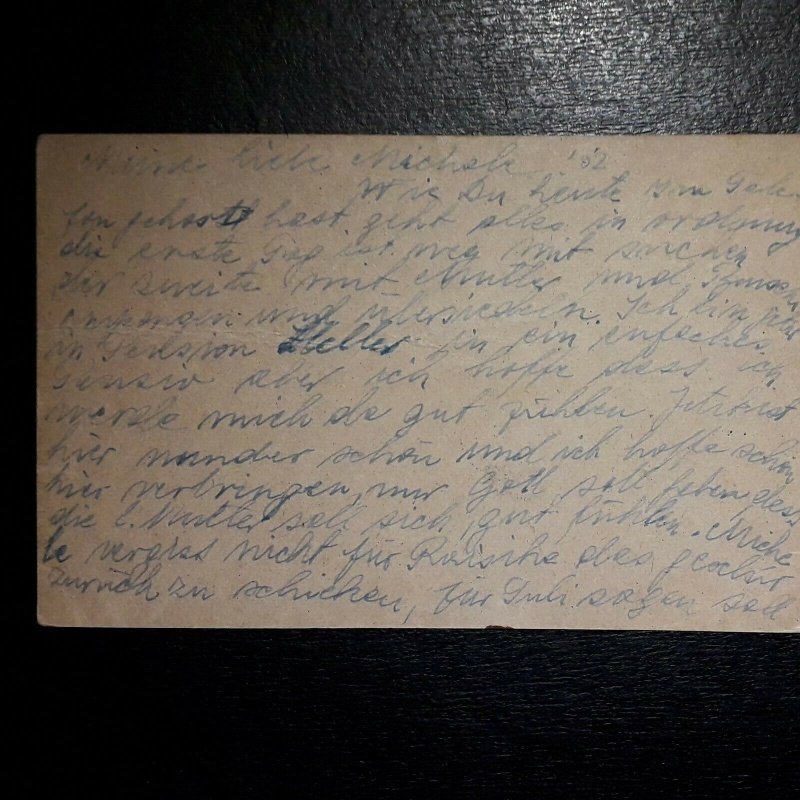 Meine liebe Michele '52
Wie Du heute im Tele-
fon gehört hast geht alles in ordnung
die erste Tag ist weg mit suchen
der zweite mit Mutter und
und übersiedeln. Ich bin jetzt
in Pension Heller in ein einfaches
aber ich hoffe dass ich
werde mich da gut fühlen. Jetzt ist
hier wunder schön und ich hoffe schön
hier verbringen, nur Gott soll geben dass
die l. Mutter soll sich gut fühlen. Miche
le vergiss nicht für das
zurück zu schicken, für Juli sagen soll